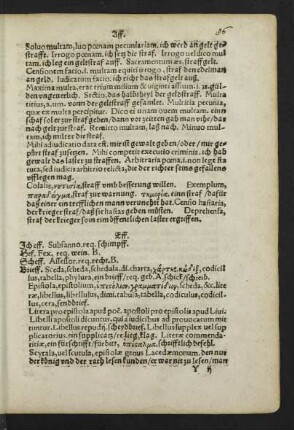 Aff.
86
Soluo multam, luo pœnam pecuniariam, ich werd an gelt ge-
straffe. Irrogo pœnam, ich setz die straf. Irrogo uel dico mul
tam, ich leg ein geltstraf auff. Sacramentum æs, straffgelt.
Censionem facio. i. multam equiti irrogo, straf den edelman
an geld. Iudicatum facio, ich richt das strafgelt auß.
Maxima mulcta, erat trium millium & uiginti assium. i.
gülden vngewerlich. Sectio, das badstheyl der geldstraff. Multa
titius, a, um. vonn der geltstraf gesamlet. Multitia pecunia,
quæ ex multa percipitur. Dico ei unam ouem multam. ein
schaf sol er zur straf geben / dann vor zeitten gab man vihe / das
nach gelt zur straf. Remitto multam, laß nach. Minuo mul-
tam, ich miltere die straf.
Mihi ad iudicatio data est. mir ist gewalt geben / oder / mir ge-
pürt straf zusprechen. Mihi competit executio criminis, ich hab
gewalt das laster zu straffen. Arbitraria pœna, i. non lege sta-
tuta, sed iudicis arbitrio relicta, die der richter seins gefallens
vfflegen mag.
straff vmb besserung willen. Exemplum,
straf zur warnung. eine straf / dafür
das einer ein trefflichen mann vervnehrt hat. Censio hastaria,
der krieger straf / daß sie hastas geben müsten. Deprehensa,
straf der krieger so in eim öffentlichen laster ergriffen.
Eff.
Ich eff. Subsanno. req. schimpff.
Hef. Fex. req. wein. B.
Scheff. Assessor. req. recht. B.
Brieff. Sceda, scheda, schedula, dī. charta, codicil-
lus, tabella, phylura, ein brieff / req. geb. A. Schief / schreib.
Epistola, epistolium, scheda, &c. lite
ræ, libellus, libellulus, dimi. tabula, tabella, codiculus, codicil-
lus, cera, sendbrief.
Litera pro epistola apud poë. apostoli pro epistolis apud Liui.
Libelli apostoli dicuntur, qui a iudicibus ad prouocatum mit-
tuntur. Libellus repudij, scheydbrief. Libellus supplex uel sup-
plicatorius, ein suppliactz / re. lieg, klag. Literæ commenda-
titiæ, ein fürschriffe / fürbitt, schrifftlich befelh.
Scytala, uel scutula, epistolæ genus Lacedæmonum, den nur
der könig vnd der rath lesen kunden / er war nit zu lesen / man
Y ij